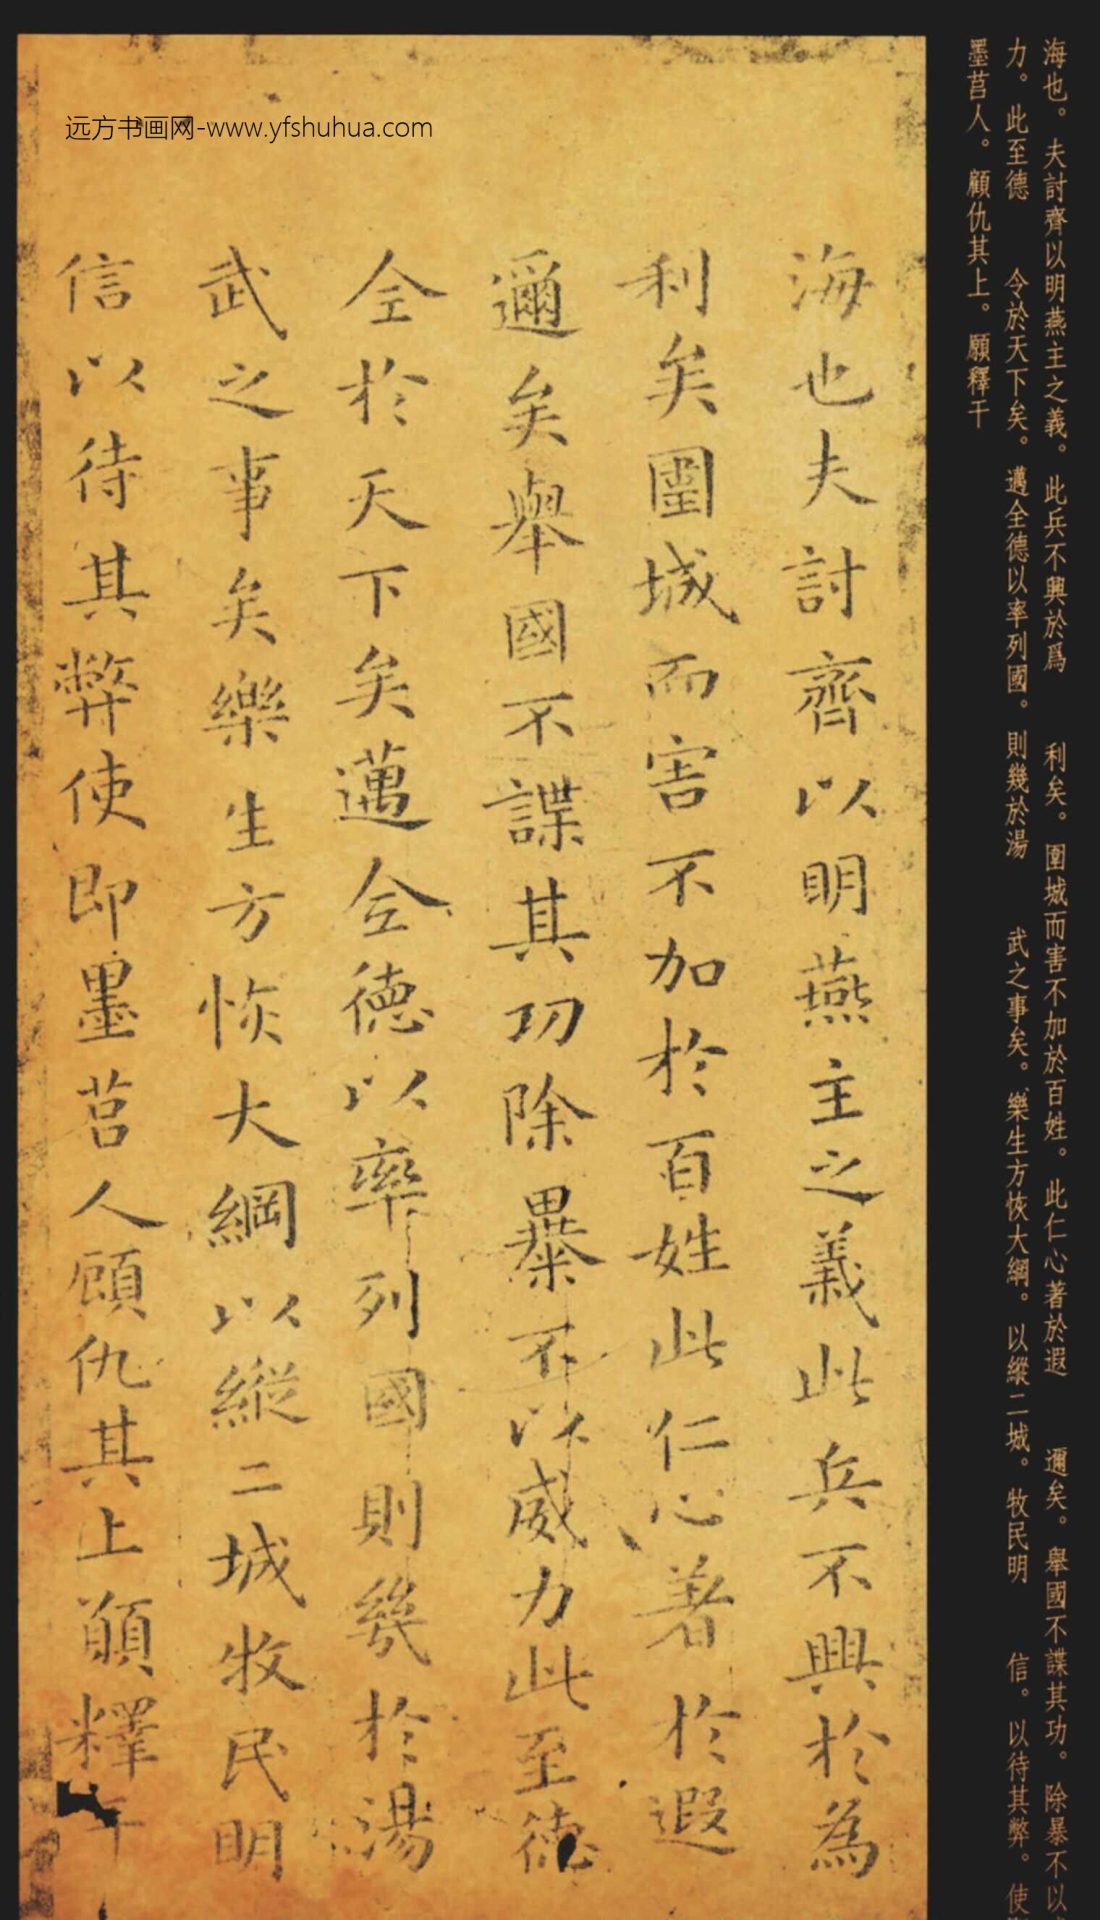 海也。夫討齊以明燕主之義。此兵不興於爲 利矣。圍城而害不加於百姓。此仁心著於遐 邇矣。舉國不謀其功。除暴不以
力。此至德 令於天下矣。邁全德以率列國。則幾於湯 武之事矣。樂生方恢大綱。以縱二城。牧民明 信。以待其弊。使
墨莒人。顧仇其上。願釋干
远方书画网-www.yfshuhua.com
海也夫討齊以明燕主之義此兵不興於為
利矣圍城而害不加於百姓此仁心著於遐
邇矣舉國不謀其功除暴不以威力此至德
全於天下矣邁全德以率列國則幾於湯
武之事矣樂生方恢大綱以縱二城牧民明
信以待其弊使即墨莒人顧仇其上願釋干